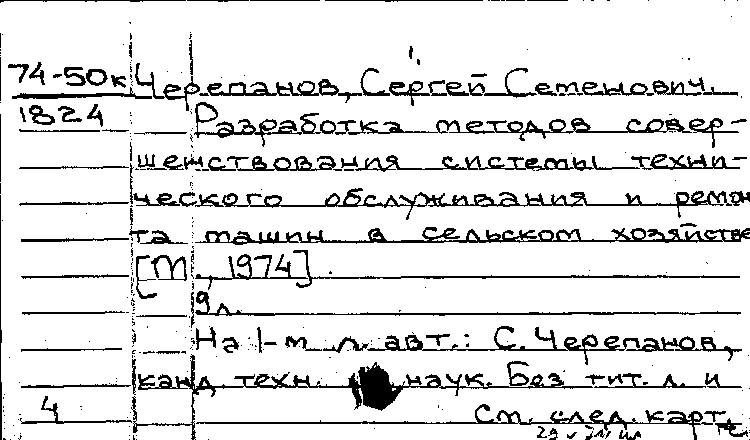 74-50к Черепанов, Сергей Семенович.
1824 Разработка методов совер-
шенствования системы техни-
ческого обслуживания и ремон-
та машин в сельском хозяйстве
[М., 1974].
9л.
На 1-м л. авт.: С. Черепанов,
канд. техн. наук. Без тит. л. и
4 См. след. карт.